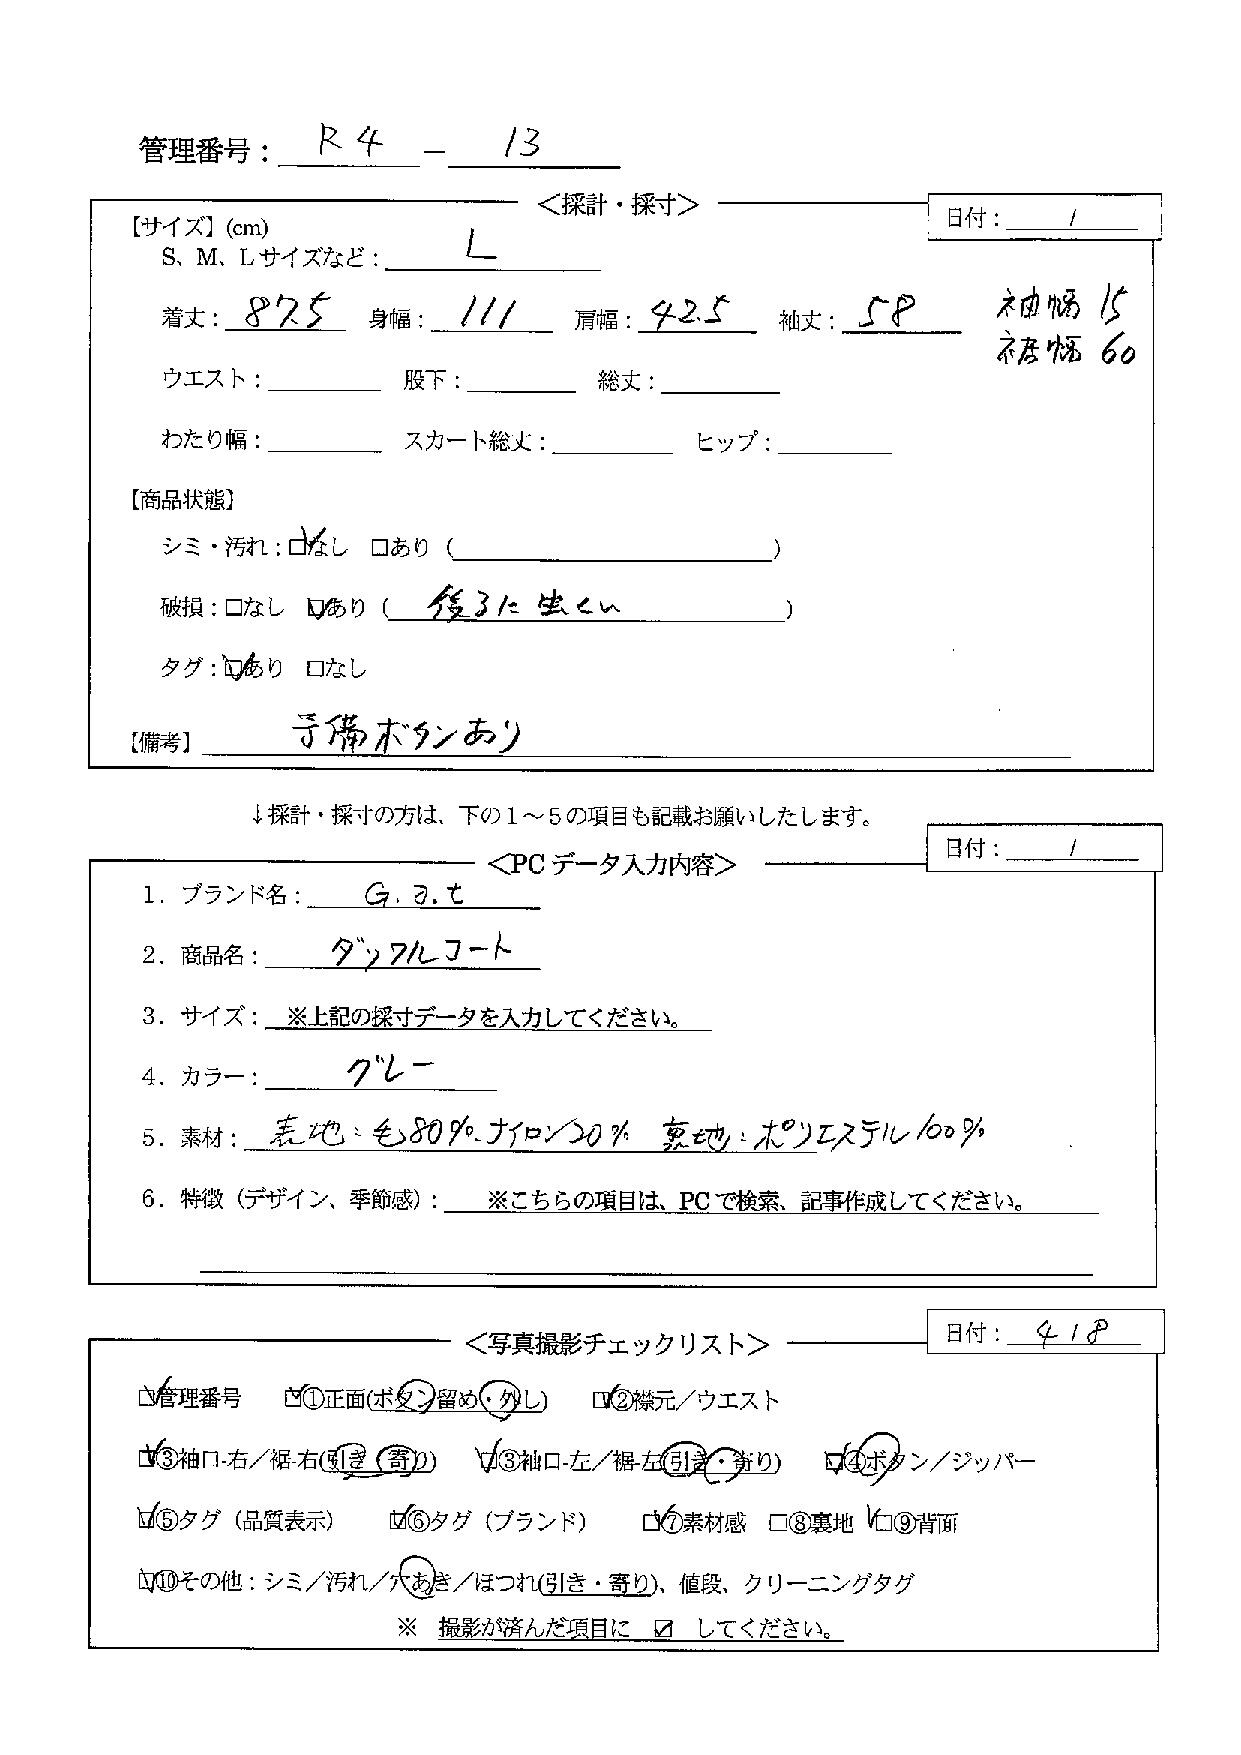 管理番号： R4 － 13
＜採計・採寸＞
日付： /
【サイズ】(cm)
S、M、Lサイズなど： L
着丈： 87.5 身幅： 111 肩幅： 42.5 袖丈： 58 袖幅 15
裾幅 60
ウエスト： 股下： 総丈：
わたり幅： スカート総丈： ヒップ：
【商品状態】
シミ・汚れ：☑なし □あり（ ）
破損：□なし ☑あり（ 後ろに虫くい ）
タグ：☑あり □なし
【備考】 予備ボタンあり
↓採計・採寸の方は、下の1～5の項目も記載お願いしたします。
日付： /
＜PCデータ入力内容＞
1．ブランド名： G.a.t
2．商品名： ダッフルコート
3．サイズ： ※上記の採寸データを入力してください。
4．カラー： グレー
5．素材： 表地：毛80%、ナイロン20% 裏地：ポリエステル100%
6．特徴（デザイン、季節感）： ※こちらの項目は、PCで検索、記事作成してください。
日付： 4/8
＜写真撮影チェックリスト＞
☑管理番号 ☑①正面(ボタン留め・外し) ☑②襟元／ウエスト
☑③袖口-右／裾-右(引き・寄り) ☑③袖口-左／裾-左(引き・寄り) ☑④ボタン／ジッパー
☑⑤タグ（品質表示） ☑⑥タグ（ブランド） ☑⑦素材感 □⑧裏地 ☑⑨背面
☑⑩その他：シミ／汚れ／穴あき／ほつれ(引き・寄り)、値段、クリーニングタグ
※ 撮影が済んだ項目に ☑ してください。